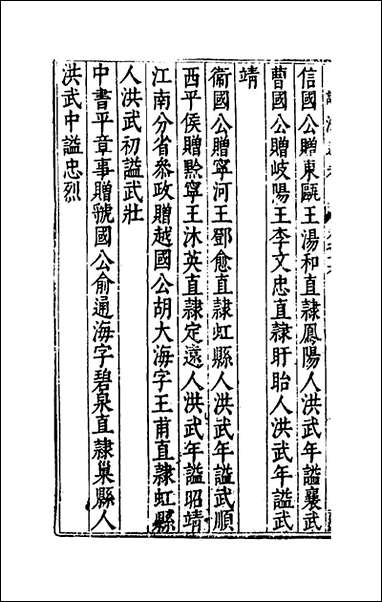 信國公贈東甌王湯和直隷鳳陽人洪武年謚襄武
曹國公贈岐陽王李文忠直隷盱眙人洪武年謚武
靖
衞國公贈寧河王鄧愈直隷虹縣人洪武年謚武順
西平侯贈黔寧王沐英直隷定遠人洪武年謚昭靖
江南分省參政贈越國公胡大海字王甫直隷虹縣
人洪武初謚武壯
中書平章事贈虢國公俞通海字碧泉直隷巢縣人
洪武中謚忠烈